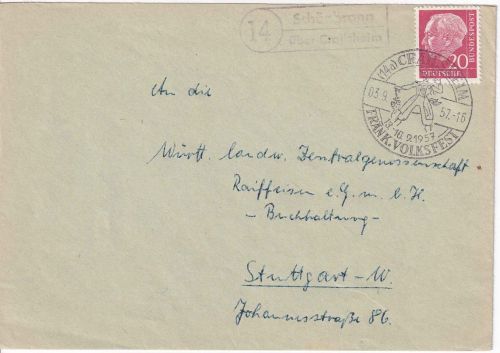 14
Schönbronn
über Crailsheim
20
DEUTSCHE
BUNDESPOST
(14a) CRAILSHEIM
03.9. 57.-16
13.-16.9.1957
FRÄNK. VOLKSFEST
An die
Württ. landw. Zentralgenossenschaft
Raiffeisen e.G.m.b.H.
- Buchhaltung -
Stuttgart-W.
Johannesstraße 86.